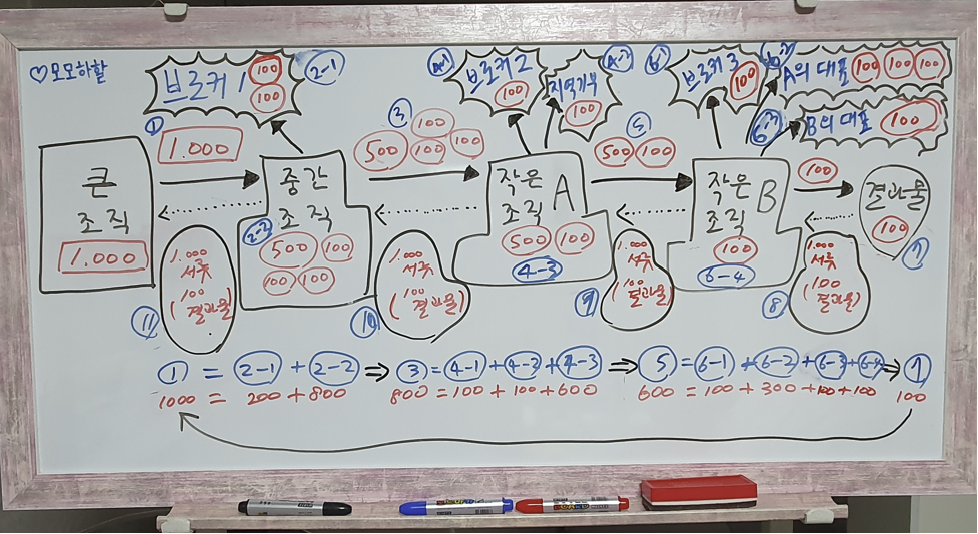 ♡모모하할
브로커1 100 100 2-1
4-1 브로커2 100
지역기부 100 4-2
6-1 브로커3 100
6-2 A의 대표 100 100 100
6-3 B의 대표 100
① 1.000
③ 500 100 100 100
⑤ 500 100
100
큰 조직
1.000
중간 조직
2-2 500 100 100 100
작은 조직 A
500 100
4-3
작은 조직 B
100
6-4
결과물
100
⑦
⑪ 1.000 서류 (100 결과물)
⑩ 1.000 서류 (100 결과물)
⑨ 1.000 서류 (100 결과물)
⑧ 1.000 서류 (100 결과물)
① = 2-1 + 2-2 ⇒ ③ = 4-1 + 4-3 + 4-3 ⇒ ⑤ = 6-1 + 6-2 + 6-3 + 6-4 ⇒ ⑦
1000 = 200 + 800 800 = 100 + 100 + 600 600 = 100 + 300 + 100 + 100 100